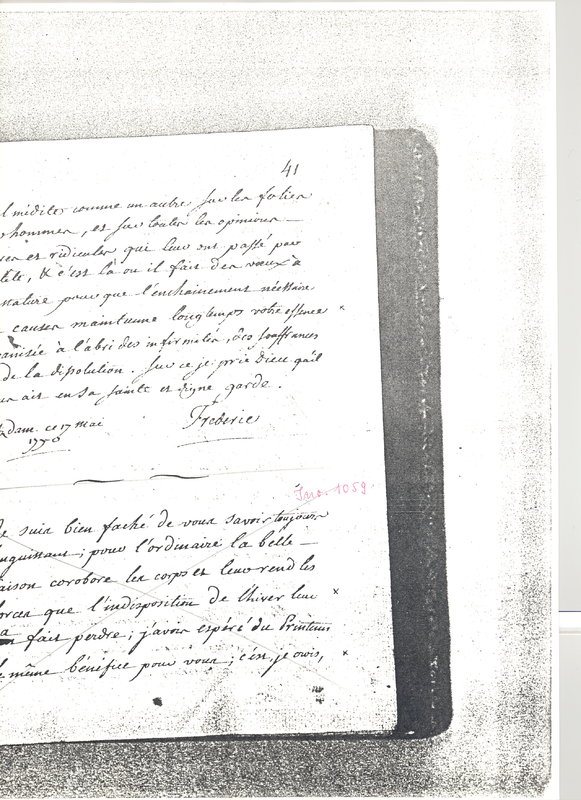 41
l méditer comme un autre sur les folies
hommes, et sur toutes les opinions
et ridicules qui leur ont passé par
tête, & c'est là ou il fait des vœux à
nature pour que l'enchainement nécessaire
causes maintienne longtemps votre essence
anisée à l'abri des infirmités, des souffrances
de la dissolution. Sur ce je prie Dieu qu'il
ait en sa sainte et digne garde.
dam. ce 17 mai Frederic
1770
Ino. 1059.
Je suis bien faché de vous savoir toujours
nguissant; pour l'ordinaire la belle
aison corobore les corps et leur rend les
orces que l'indisposition de l'hiver leur
a fait perdre; j'avois espéré du Printems
même bénéfice pour vous; c'est, je crois,